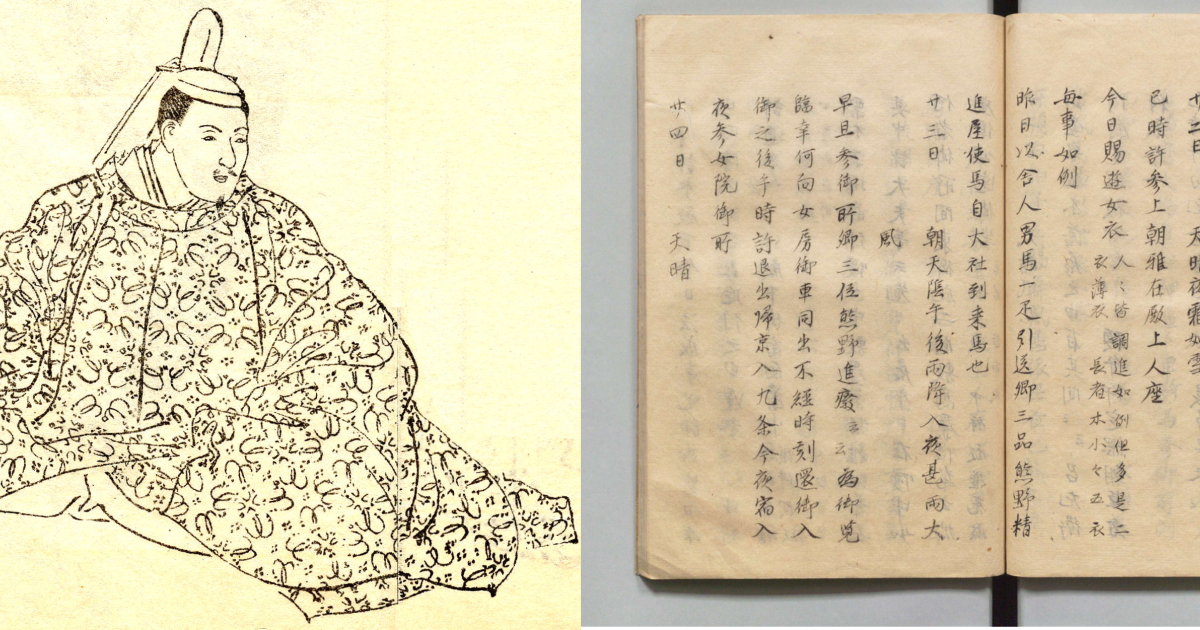 廿二日 天晴夜霜如雪
巳時許参上朝雅在殿上人座
今日賜遊女衣 人〻皆調進如例但多是二
衣薄衣 長者木小々五衣
毎事如例
昨日以舎人男馬一疋引送卿三品熊野精
進屋使馬自大社到来馬也
廿三日 朝天陰午後雨降入夜甚雨大
風
早旦参御所卿三位熊野進發云云為御覧
臨幸何向女房御車同出不経時刻還御入
御之後午時許退出帰京入九条今夜宿入
夜参女院御所
廿四日 天晴